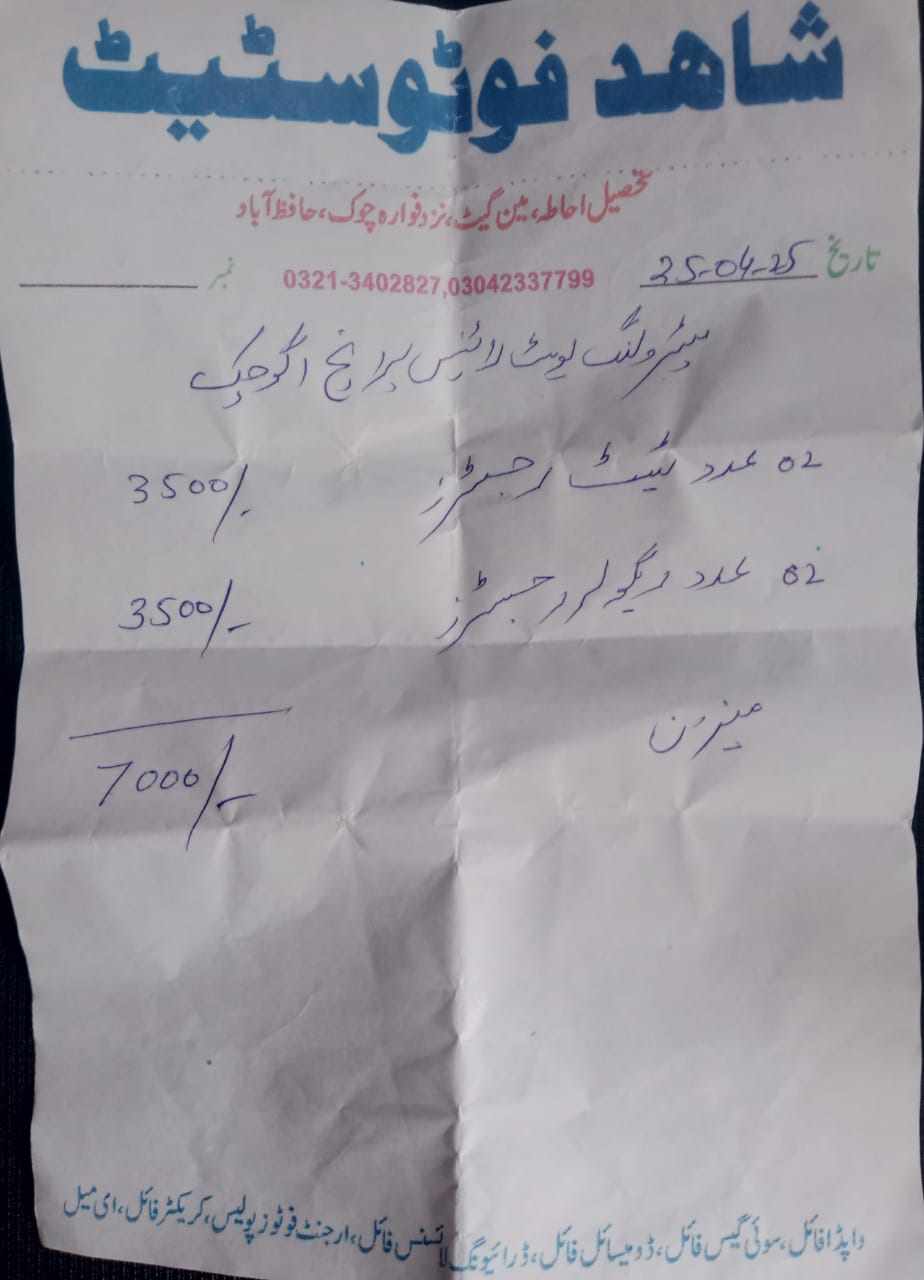 شاھد فوٹوسٹیٹ
تحصیل احاطہ، مین گیٹ، نزد فوارہ چوک، حافظ آباد
تاریخ 25-04-25 0321-3402827,03042337799 نمبر
پٹرولنگ پوسٹ لائنس برانچ
02 عدد ٹیسٹ رجسٹرز 3500/-
02 عدد ریگولر رجسٹرز 3500/-
میزان 7000/-
واپڈا فائل، سوئی گیس فائل، ڈومیسائل فائل، ڈرائیونگ لائسنس فائل، ارجنٹ فوٹوز پولیس، کریکٹر فائل، ای میل